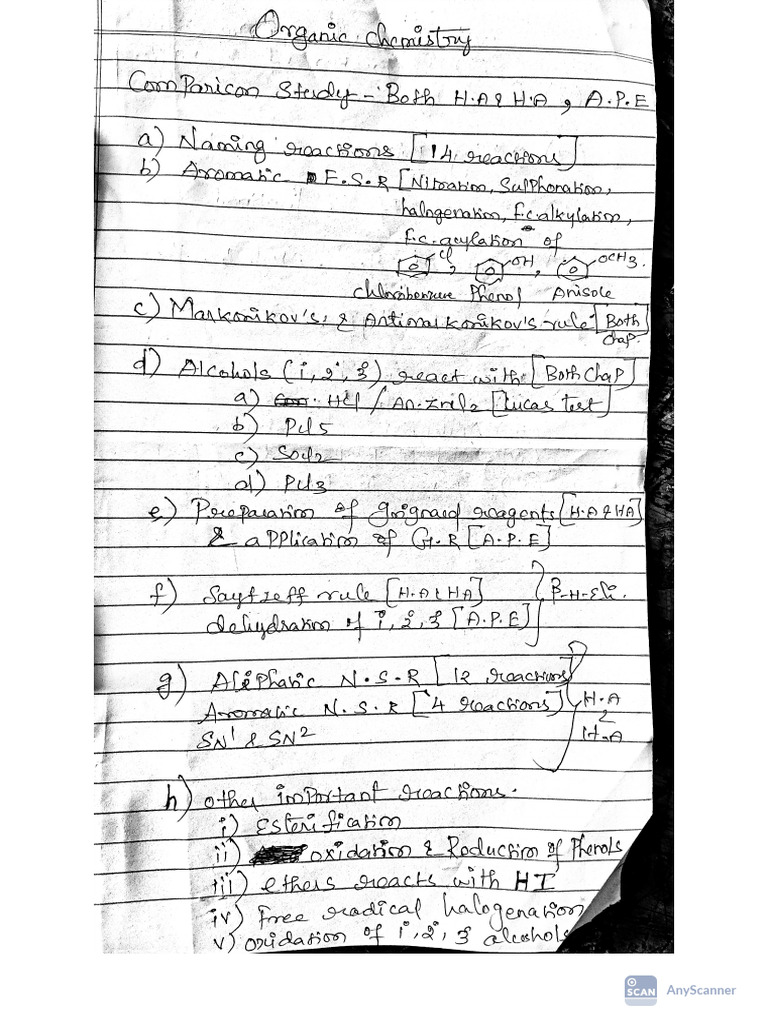 Organic chemistry
Comparison Study - Both H.A & H.A, A.P.E
a) Naming reactions [14 reactions]
b) Aromatic E.S.R [Nitration, Sulphonation,
halogenation, f.c. alkylation,
f.c. acylation of
Cl, OH, OCH3.
chlorobenzene Phenol Anisole
c) Markonikov's & Antimarkonikov's rule [Both
chap.
d) Alcohols (1°, 2°, 3°) react with [Both Chap]
a) HCl / An. ZnCl2 [Lucas test]
b) PCl5
c) SOCl2
d) PCl3
e) Preparation of Grignard reagents [H.A & HA]
& application of G.R [A.P.E]
f) Saytzeff rule [H.A & HA]
dehydration of 1°, 2°, 3° [A.P.E]
β-H-Eli.
g) Aliphatic N.S.R [12 reactions]
Aromatic N.S.R [4 reactions]
SN1 & SN2
H.A
&
H.A
h) other important reactions.
i) Esterification
ii) oxidation & Reduction of Phenols
iii) ethers reacts with HI
iv) Free radical halogenation
v) oxidation of 1°, 2°, 3° alcohols
SCAN AnyScanner